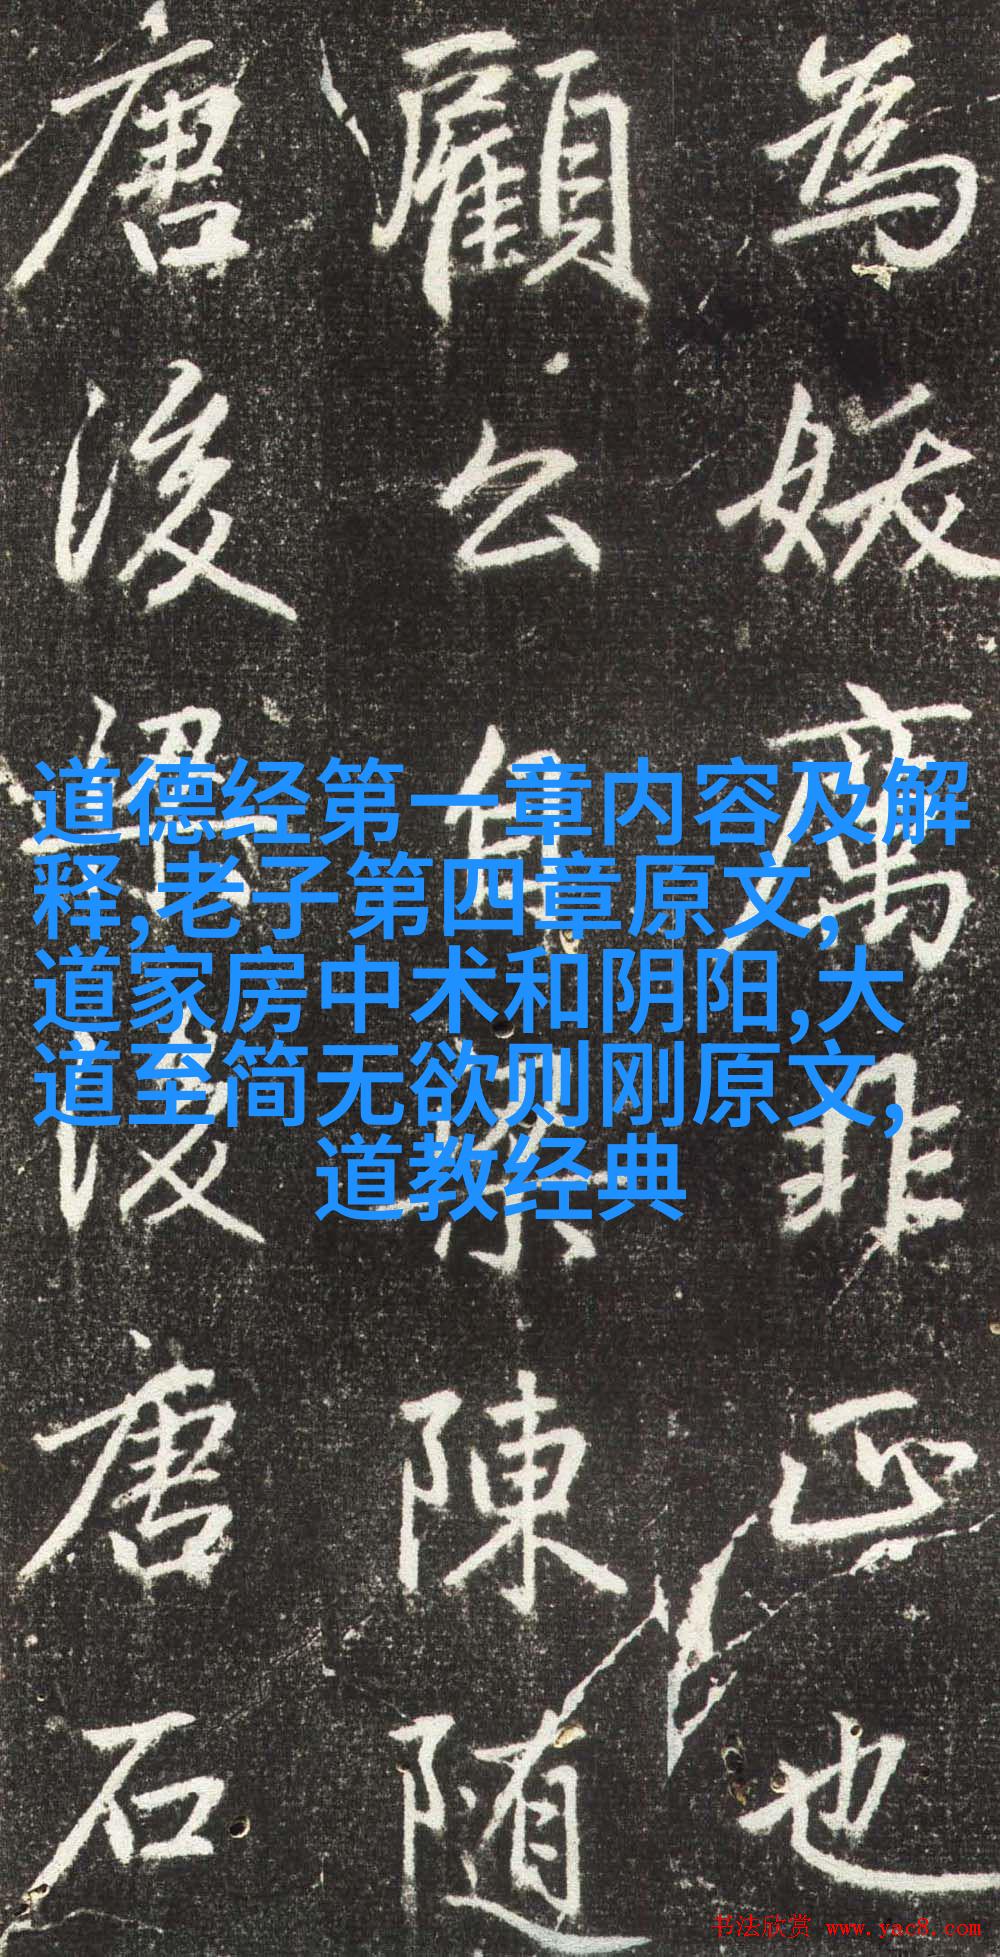 為妖厲非正也
顧公自梁陳随
唐後梁後唐石
道德经第一章内容及解
释,老子第四章原文,
道家房中术和阴阳,大
道至简无欲则刚原文,
道教经典
书法欣赏 www.yac8.com